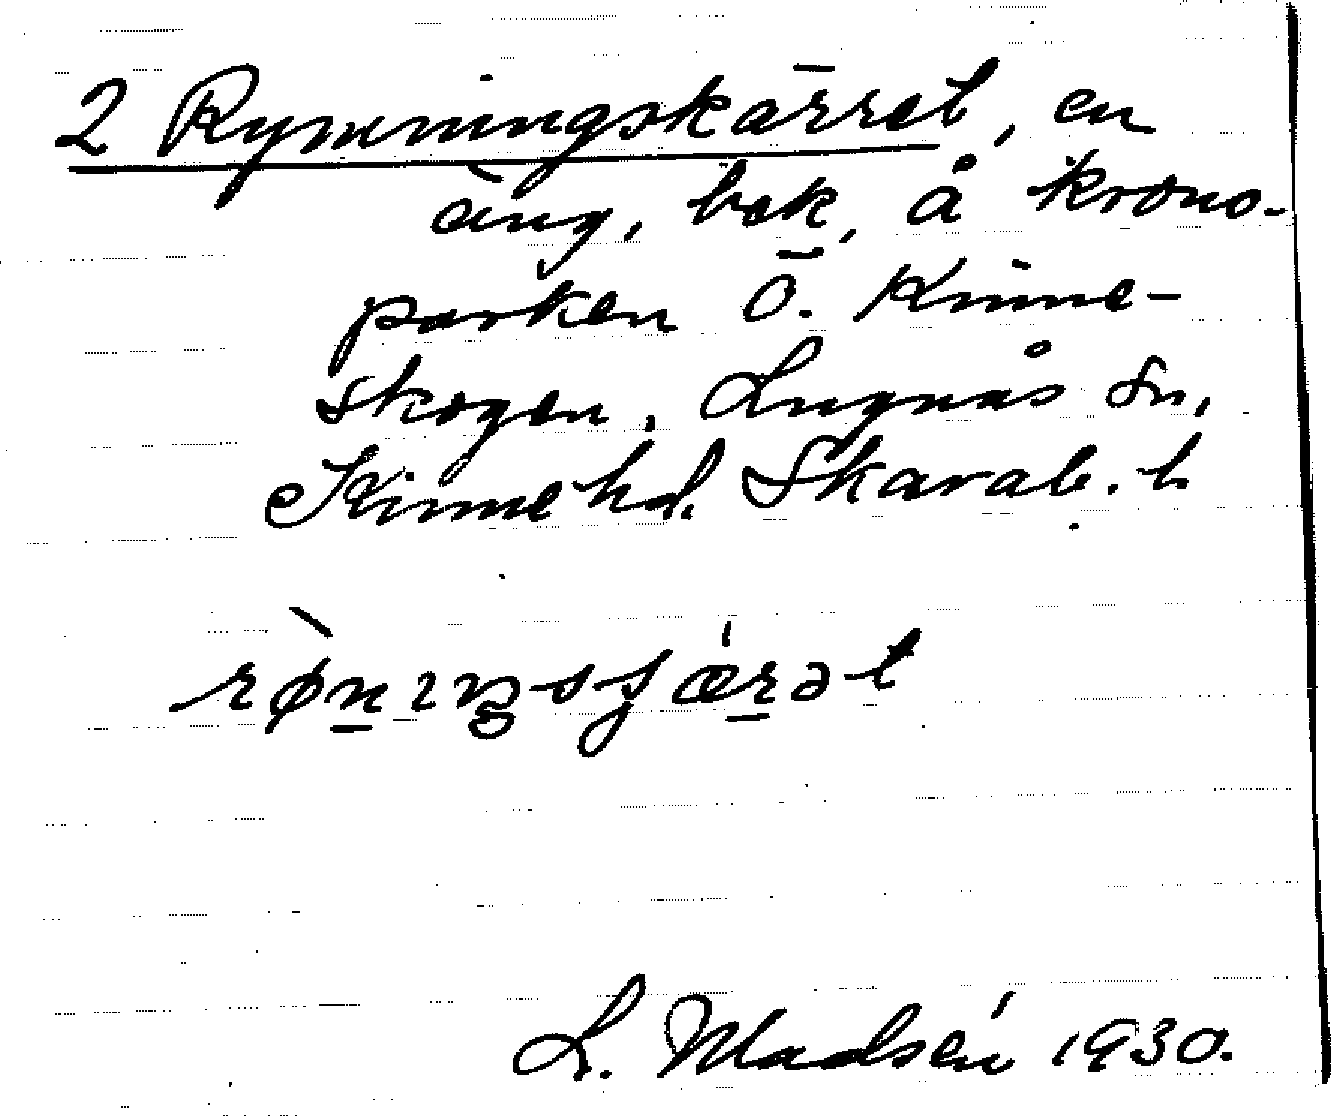 2 Rymningskärret, en
äng, bok, å krono-
parken Ö. Kinne-
skogen, Lugnås sn,
Kinne hd. Skarab. l.
L. Madsén 1930.